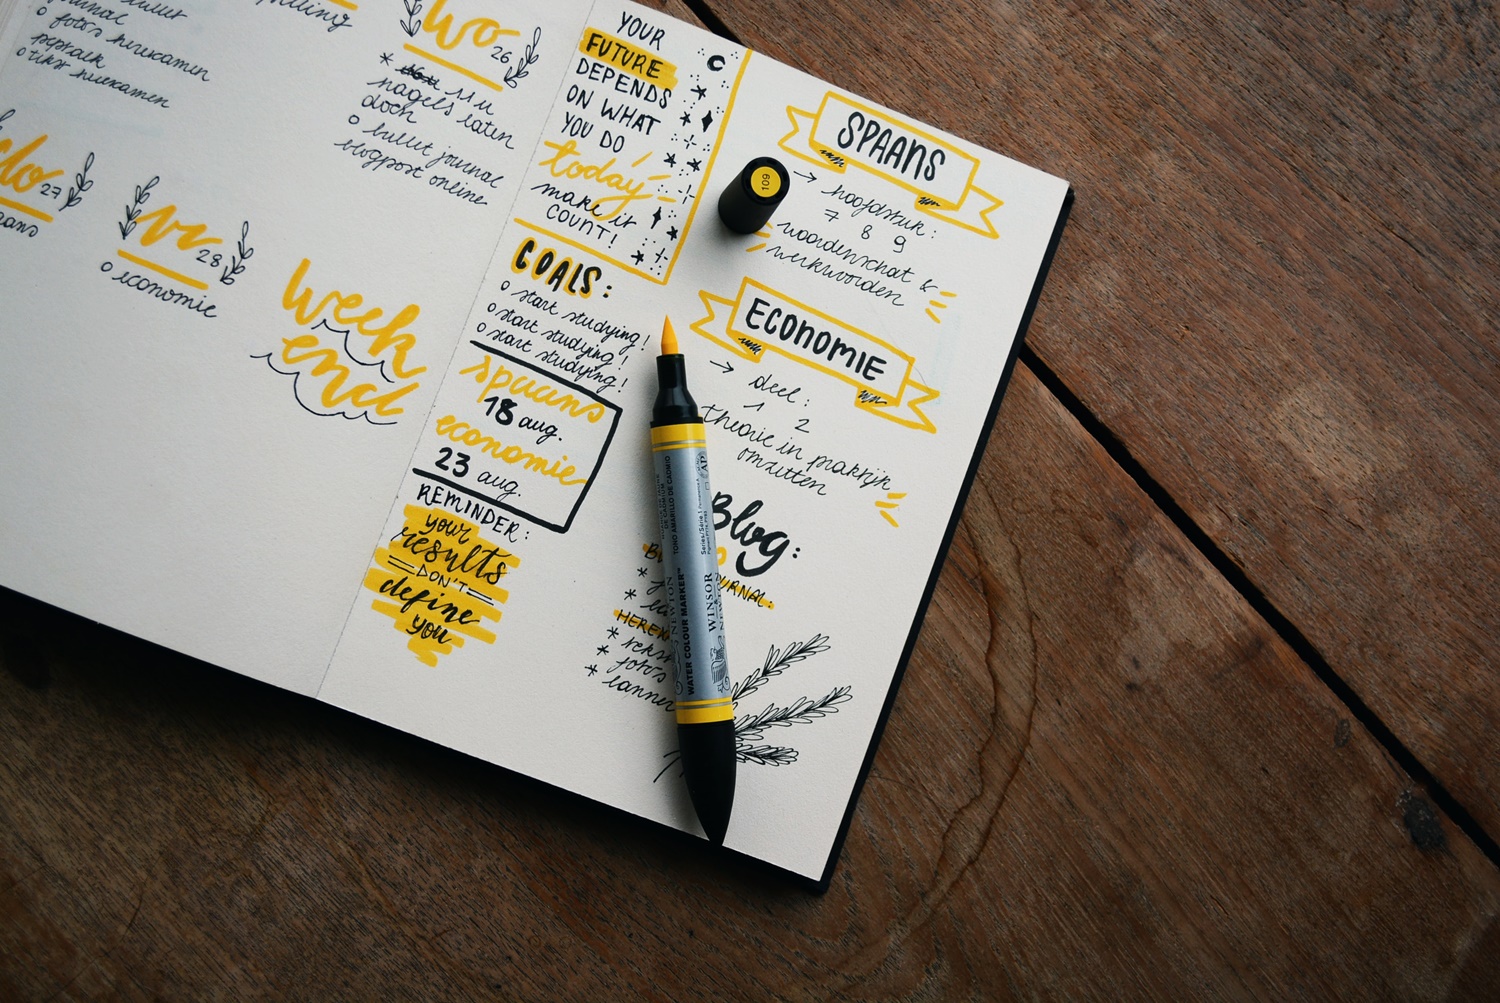 bullet
journal
o foto's herexamen
peptalk
o tekst herexamen
planning
wo 26
* 11 u
nagels laten
doen
o bullet journal
blogpost online
do 27
vr 28
o economie
week
end
YOUR
FUTURE
DEPENDS
ON WHAT
YOU DO
today
make it
COUNT!
GOALS:
o start studying!
o start studying!
o start studying!
spaans
18 aug.
economie
23 aug.
REMINDER:
your
results
DON'T
define
you
SPAANS
→ hoofdstuk:
7 8 9
woordenschat &
werkwoorden
ECONOMIE
→ deel:
1 2
theorie in praktijk
omzetten
Blog:
JOURNAL:
*
HEREX
* tekst
* foto's
* banner
109
TONO AMARILLO DE CADMIO
Series/Série 1
AP
WATER COLOUR MARKER™
WINSOR
& NEWTON